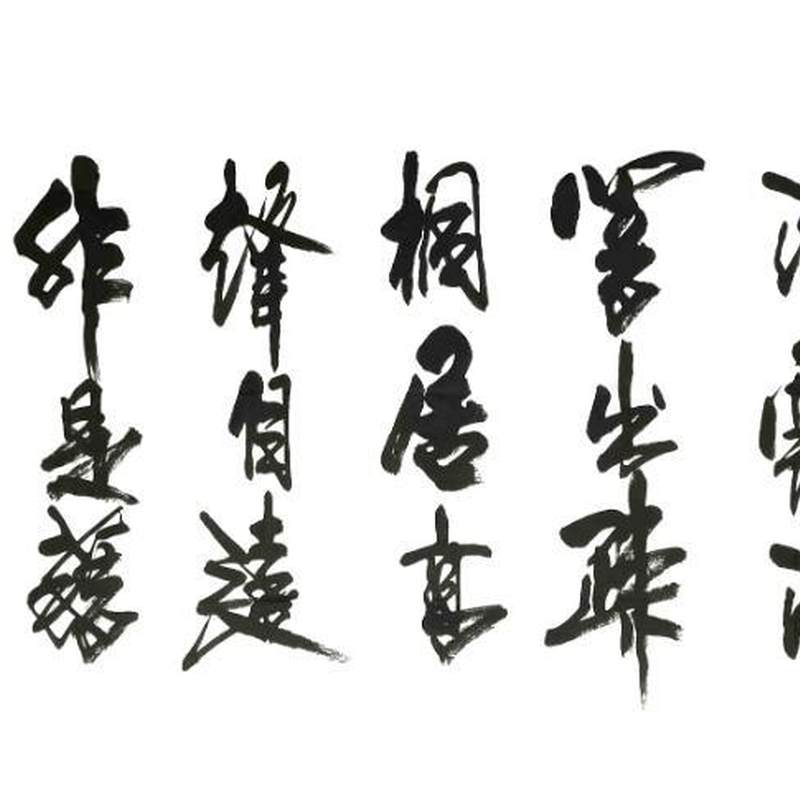 響出疎
桐居高
聲自遠
非是藉